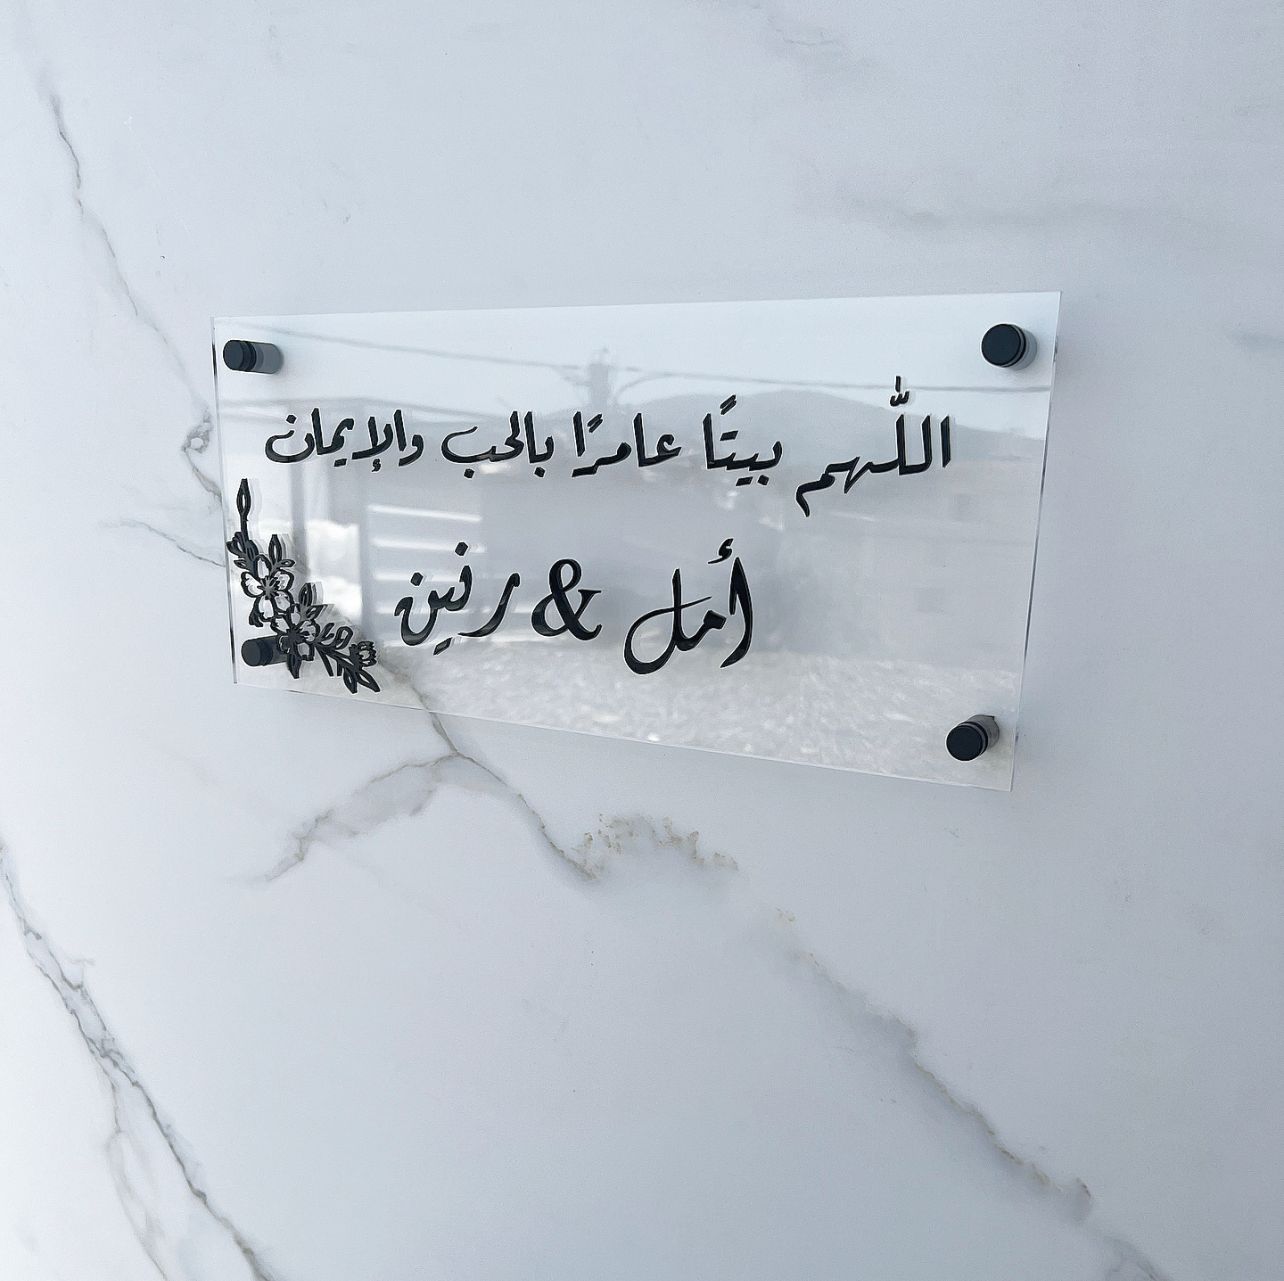 اللّهم بيتًا عامرًا بالحب والإيمان
أمل & رنين